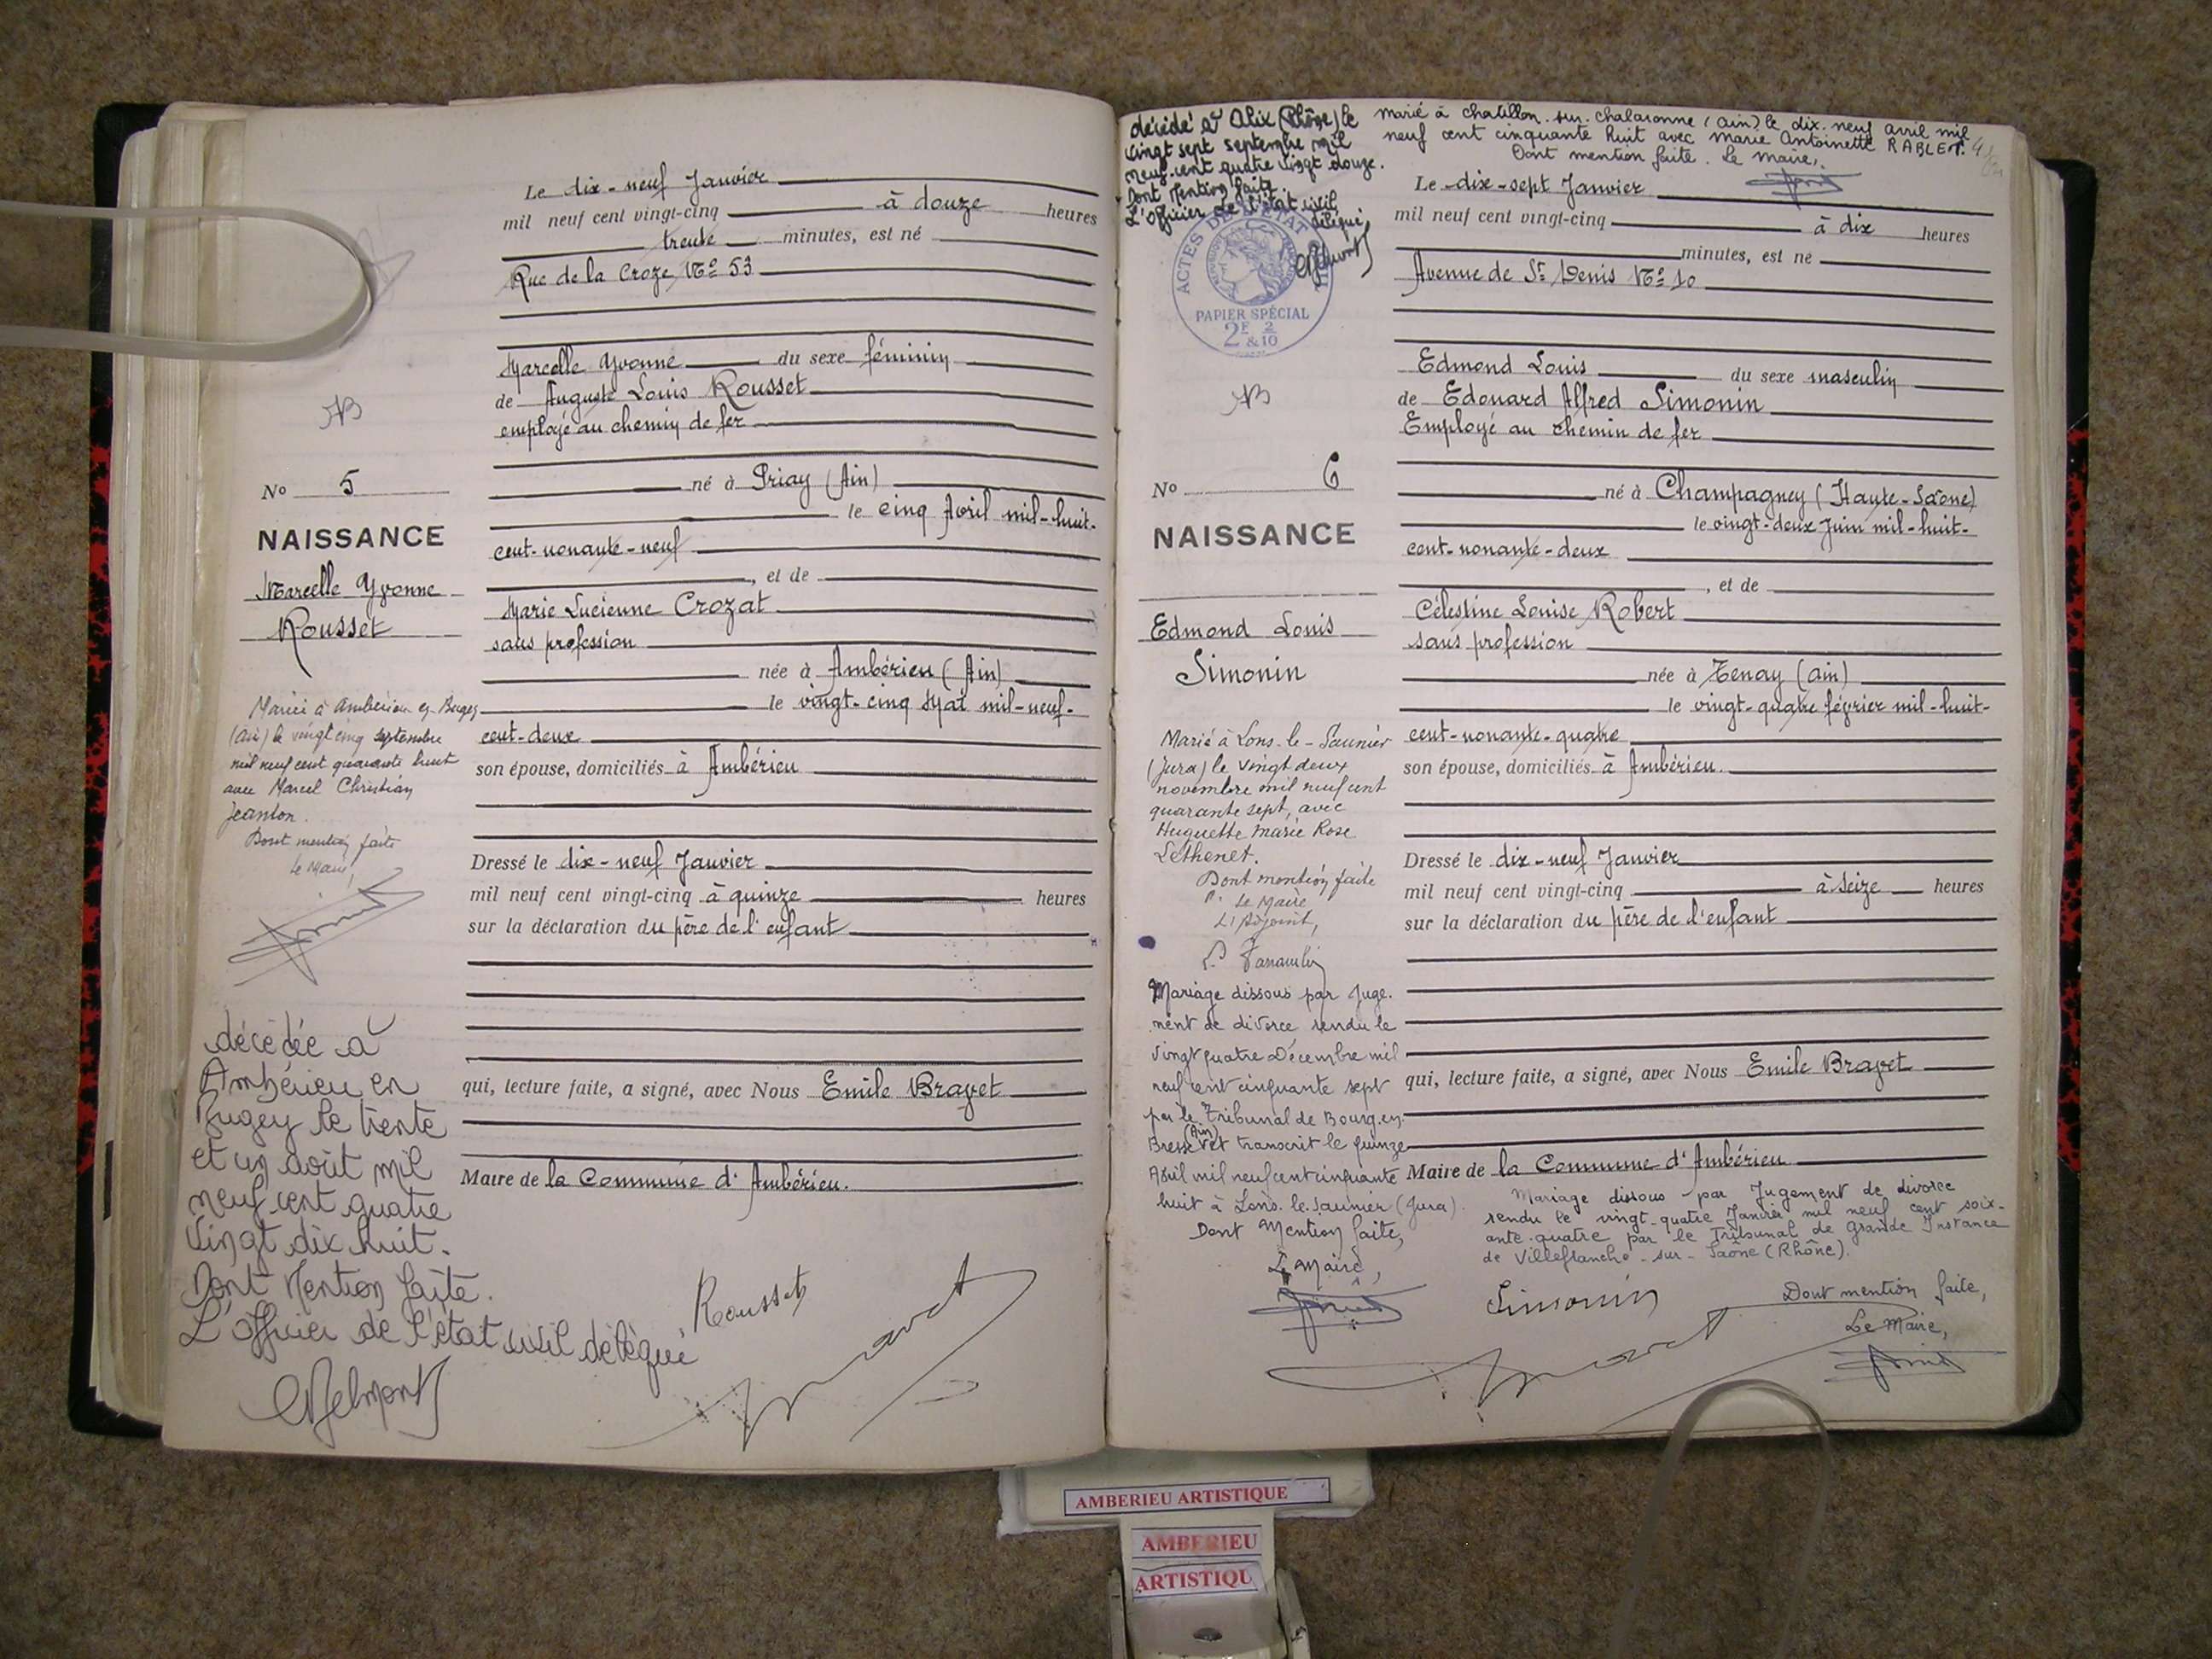 Le dix-neuf Janvier
mil neuf cent vingt-cinq à douze heures
trente minutes, est né
Rue de la Croze, No 53
Marcelle Yvonne du sexe féminin
de Auguste Louis Rousset
employé au chemin de fer
né à Priay (Ain)
le cinq Avril mil-huit-
cent-nonante-neuf
, et de
Marie Lucienne Crozat
sans profession
née à Ambérieu (Ain)
le vingt-cinq Mai mil-neuf-
cent-deux
son épouse, domiciliés à Ambérieu
Dressé le dix-neuf Janvier
mil neuf cent vingt-cinq à quinze heures
sur la déclaration du père de l'enfant
qui, lecture faite, a signé, avec Nous Emile Bravet
Maire de la Commune d'Ambérieu.
Rousset
Bravet
No 5
NAISSANCE
Marcelle Yvonne
Rousset
Mariée à Ambérieu en Bugey
(Ain) le vingt cinq septembre
mil neuf cent quarante huit
avec Marcel Christian
Jeanton.
Dont mention faite
Le Maire,
décédée à
Ambérieu en
Bugey le trente
et un août mil
neuf cent quatre
vingt dix huit.
Dont Mention faite.
L'officier de l'état civil délégué
décédé à Alix (Rhône) le
vingt sept septembre mil
neuf cent quatre vingt douze.
Dont Mention faite.
L'officier de l'état civil
délégué
marié à Chatillon-sur-Chalaronne (Ain) le dix-neuf avril mil
neuf cent cinquante huit avec Marie Antoinette RABLET.
Dont mention faite. Le Maire,
ACTES DE L'ETAT
PAPIER SPÉCIAL
2F 2
&10
Le dix-sept Janvier
mil neuf cent vingt-cinq à dix heures
minutes, est né
Avenue de St Denis No 10
Edmond Louis du sexe masculin
de Edouard Alfred Simonin
Employé au chemin de fer
né à Champagney (Haute-Saône)
le vingt-deux Juin mil-huit-
cent-nonante-deux
, et de
Célestine Louise Robert
sans profession
née à Tenay (Ain)
le vingt-quatre février mil-huit-
cent-nonante-quatre
son épouse, domiciliés à Ambérieu.
Dressé le dix-neuf Janvier
mil neuf cent vingt-cinq à seize heures
sur la déclaration du père de l'enfant
qui, lecture faite, a signé, avec Nous Emile Bravet
Maire de la Commune d'Ambérieu
Mariage dissous par Jugement de divorce
rendu le vingt-quatre Janvier mil neuf cent soix-
ante-quatre par le Tribunal de Grande Instance
de Villefranche-sur-Saône (Rhône).
Dont mention faite,
Le Maire,
Simonin
Bravet
No 6
NAISSANCE
Edmond Louis
Simonin
Marié à Lons-le-Saunier
(Jura) le vingt deux
novembre mil neuf cent
quarante sept, avec
Huguette Marie Rose
Lethenet.
Dont mention faite
P. Le Maire
L'Adjoint,
Mariage dissous par Juge-
ment de divorce rendu le
vingt quatre Décembre mil
neuf cent cinquante sept
par le Tribunal de Bourg-en-
Bresse (Ain) et transcrit le quinze
Avril mil neuf cent cinquante
huit à Lons-le-Saunier (Jura).
Dont Mention faite,
Le Maire,
AMBERIEU ARTISTIQUE
AMBERIEU
ARTISTIQU